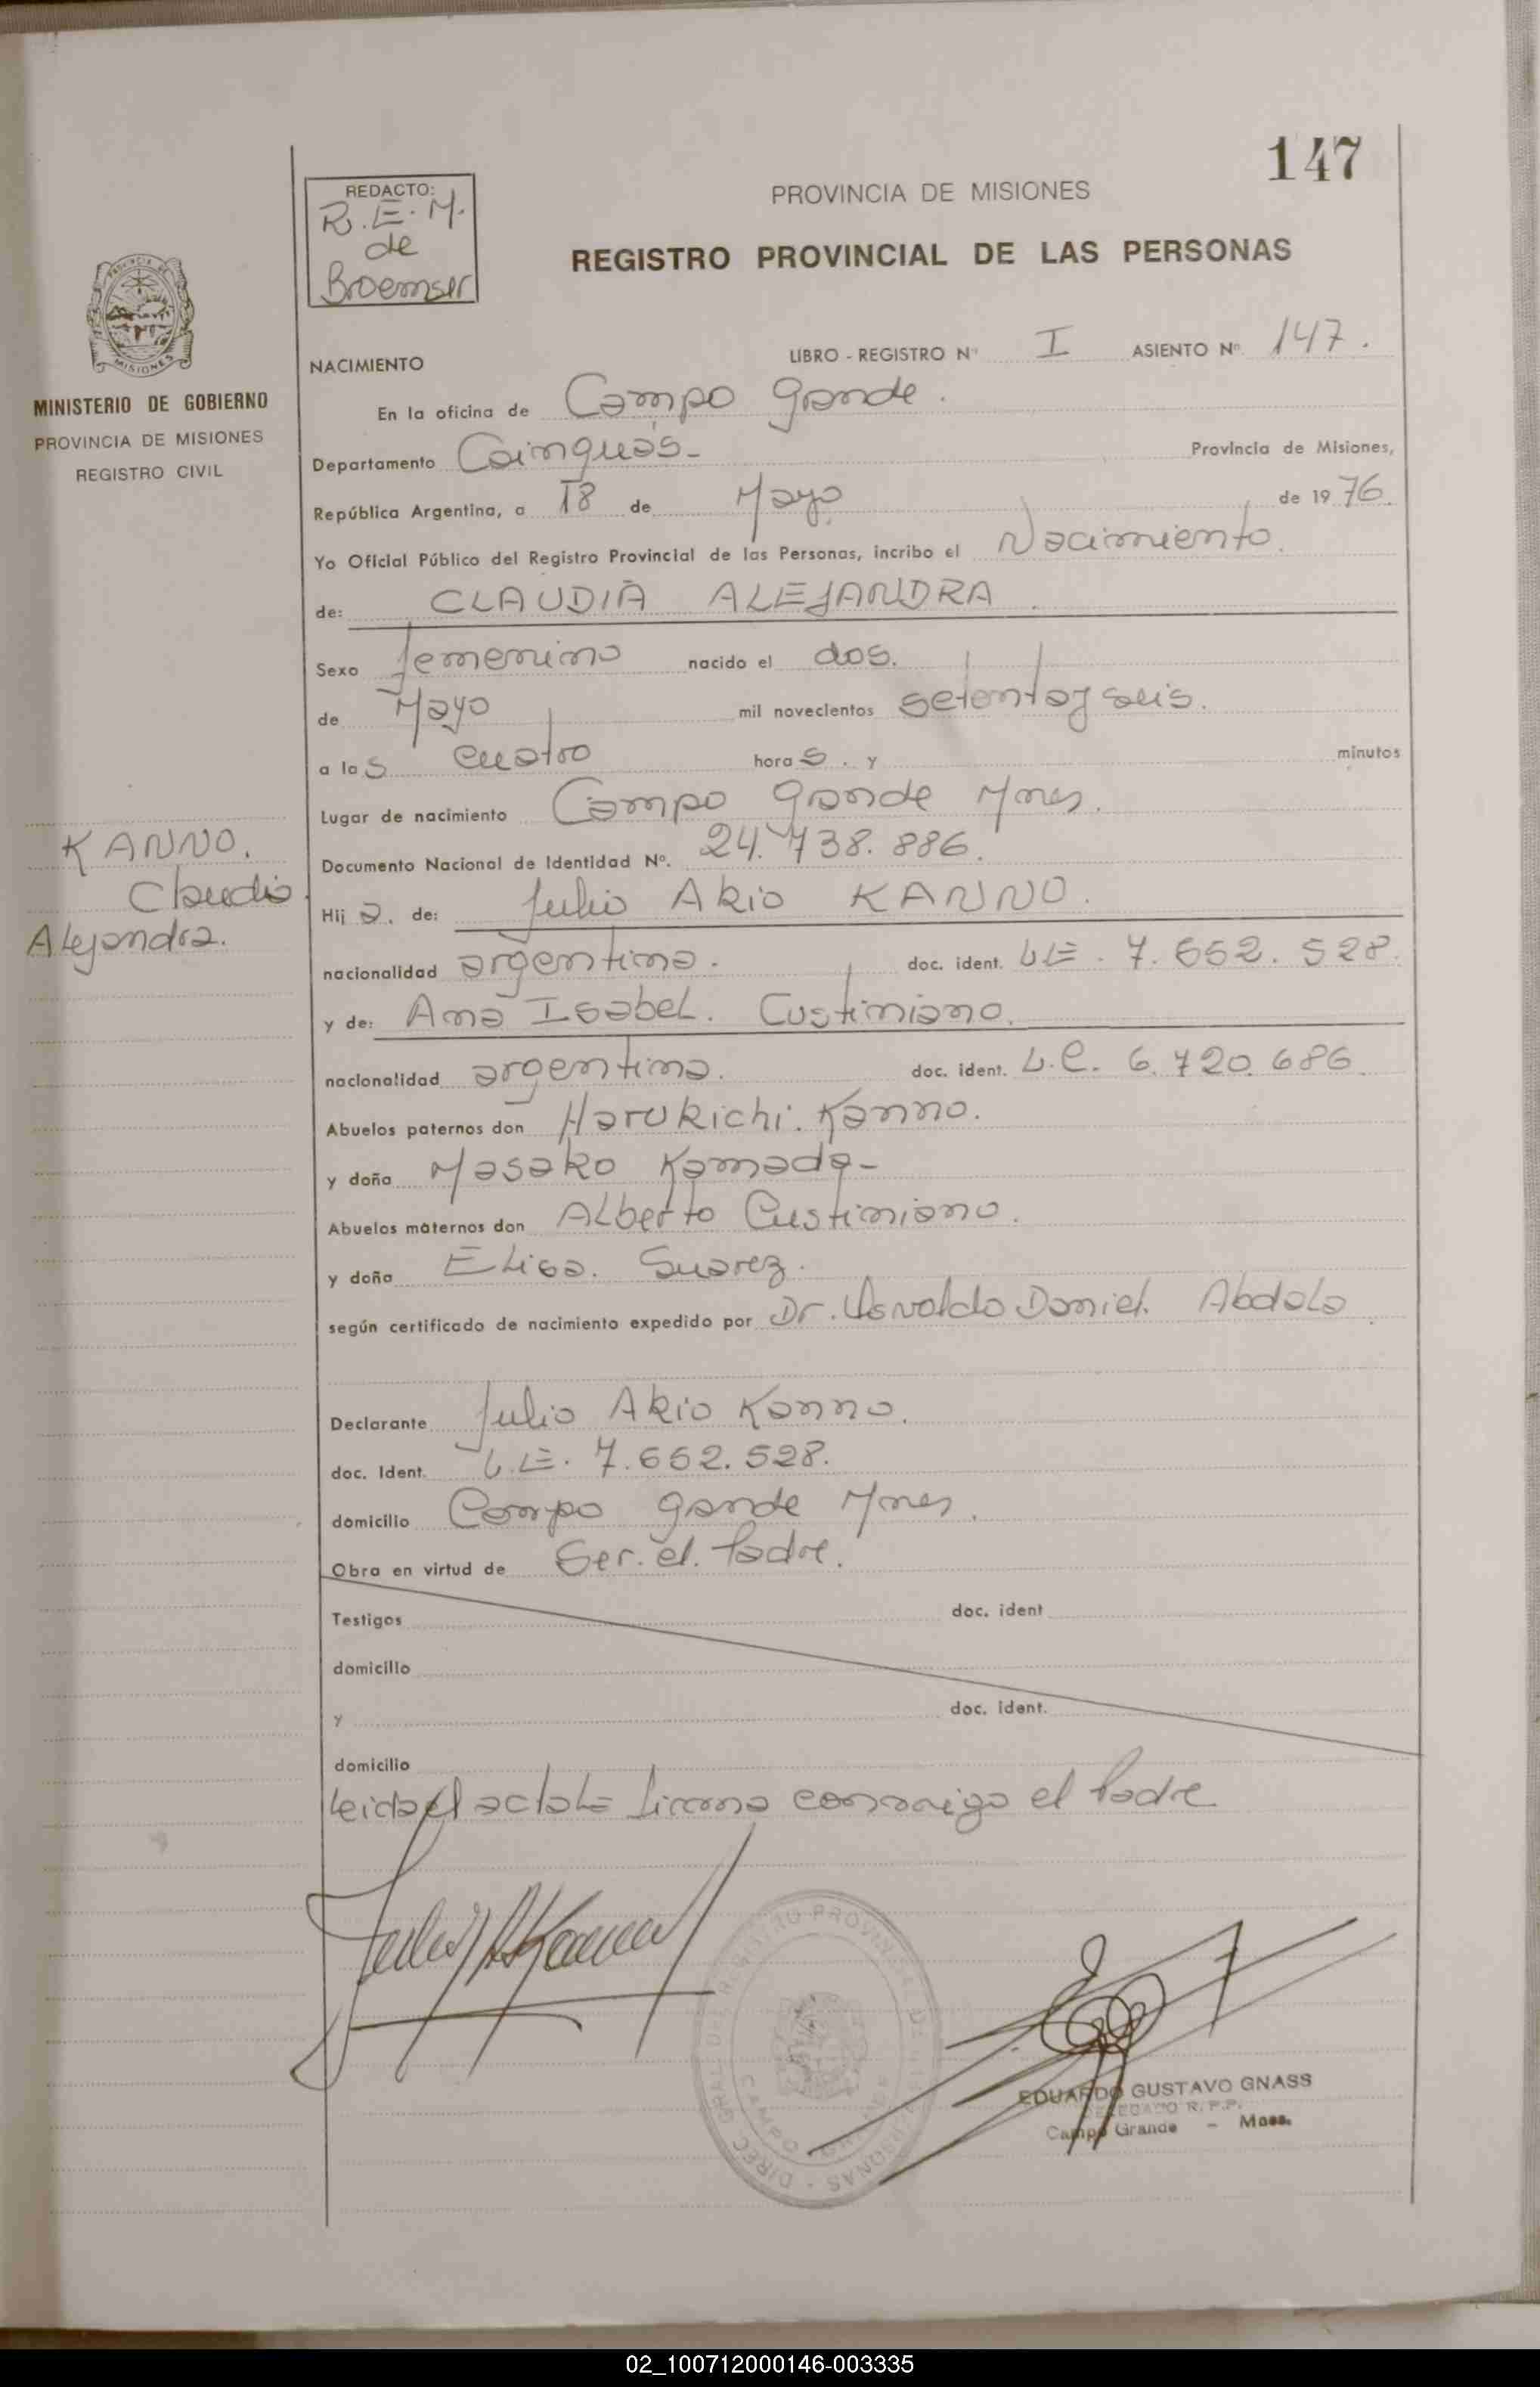 147
REDACTO:
R.E.M.
de
Broemser
PROVINCIA DE MISIONES
REGISTRO PROVINCIAL DE LAS PERSONAS
MISIONES
MINISTERIO DE GOBIERNO
PROVINCIA DE MISIONES
REGISTRO CIVIL
NACIMIENTO LIBRO - REGISTRO Nº I ASIENTO Nº 147.
En la oficina de Campo Grande.
Departamento Cainguás- Provincia de Misiones,
República Argentina, a 18 de Mayo de 1976.
Yo Oficial Público del Registro Provincial de las Personas, incribo el Nacimiento.
de: CLAUDIA ALEJANDRA.
Sexo femenino nacido el dos.
de Mayo mil novecientos setentayseis.
a las cuatro horas. y minutos
Lugar de nacimiento Campo Grande Mnes.
Documento Nacional de Identidad Nº. 24.738.886.
KANNO.
Claudia
Alejandra.
Hija. de: Julio Akio KANNO.
nacionalidad argentina. doc. ident. L.E. 7.652.528.
y de: Ana Isabel. Custiniano.
nacionalidad argentina. doc. ident. L.C. 6.720.686.
Abuelos paternos don Harukichi. Kanno.
y doña Masako Kamada-
Abuelos maternos don Alberto Custiniano.
y doña Elisa. Suarez.
según certificado de nacimiento expedido por Dr. Osvaldo Daniel. Abdala
Declarante Julio Akio Kanno.
doc. Ident. L.E. 7.652.528.
domicilio Campo Grande Mnes.
Obra en virtud de Ser. el. Padre.
Testigos doc. ident
domicilio
y doc. ident.
domicilio
Leida el acta la firma conmigo el Padre
EDUARDO GUSTAVO GNASS
DELEGADO R.P.P.
Campo Grande - Mnes.
02_100712000146-003335